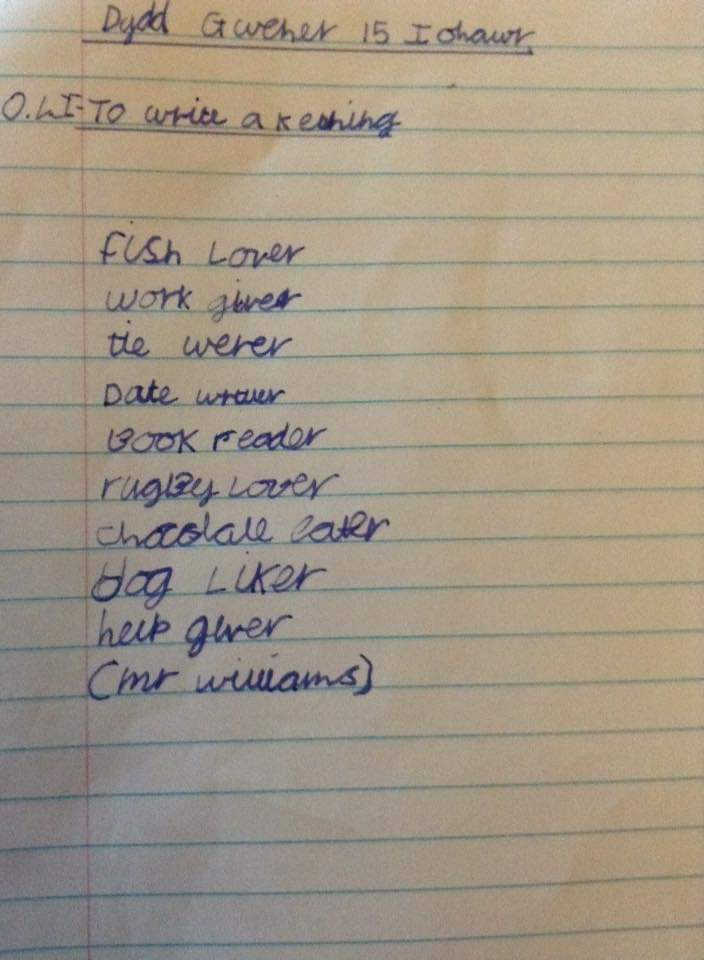 Dydd Gwener 15 Ionawr
O.L.I-To write a kenning
Fish Lover
work giver
tie werer
Date writer
Book reader
rugBy Lover
chocolate eater
blog Liker
help giver
(mr williams)